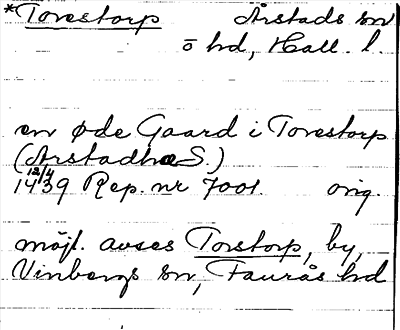 *Torestorp Årstads sn
ö hd, Hall. l.
en øde Gaard i Torestorp
(Arstadhæ S.)
12/4
1439 Rep. nr 7001. orig.
möjl. avses Torstorp, by,
Vinbergs sn, Faurås hd